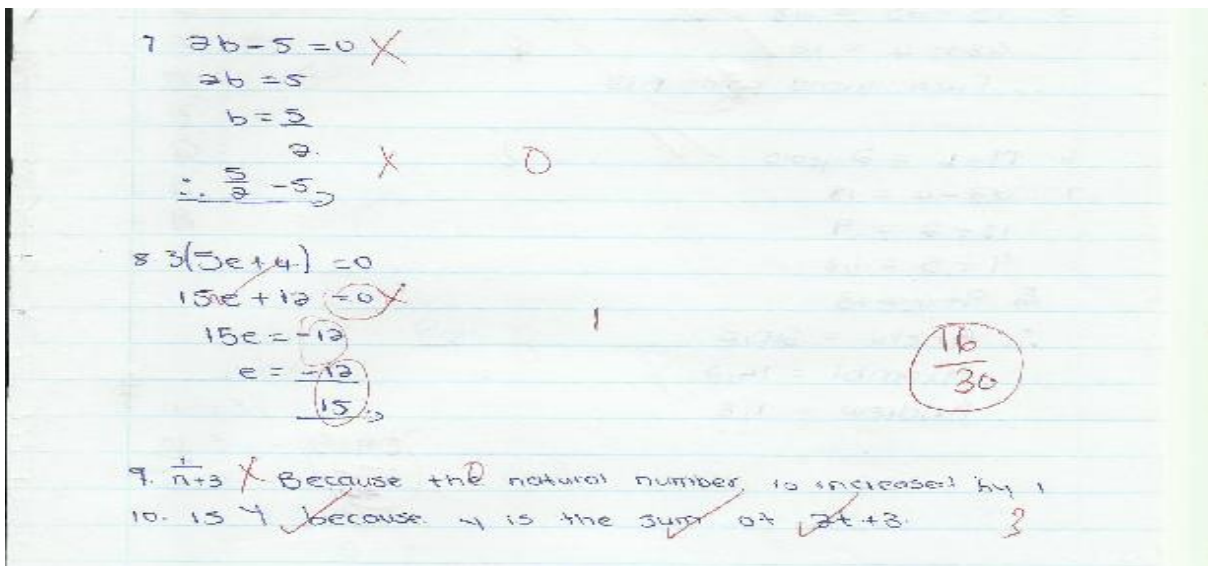 7 2b - 5 = 0 X
2b = 5
b = 5
2.
X 0
∴ 5/2 - 5
8 3(5e + 4) = 0
15e + 12 = 0 X
15e = -12
1
e = -12
15
16
30
9. 1/n+3 X Because the natural number is increased by 1
0
10. is y because y is the sum of 2t + 3. 3